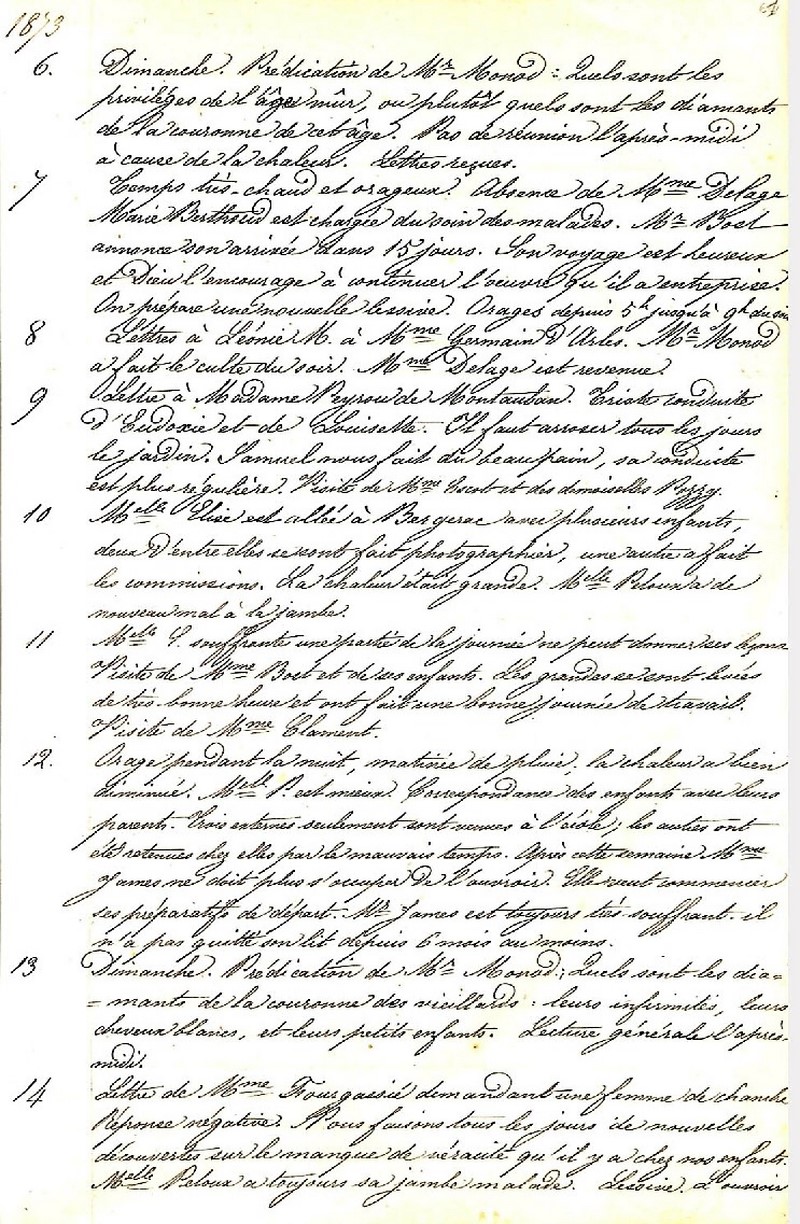 1873
6. Dimanche. Prédication de Mr Monod : Quels sont les
privilèges de l'âge mûr, ou plutôt quels sont les diamants
de la couronne de cet âge. Pas de réunion l'après-midi
à cause de la chaleur. Lettres reçues.
7 Temps très-chaud et orageux. Absence de Mme Delage
Marie Berthoud est chargée du soin des malades. Mr Bost
annonce son arrivée dans 15 jours. Son voyage est heureux
et Dieu l'encourage à continuer l'oeuvre qu'il a entreprise.
On prépare une nouvelle lessive. Orages depuis 5h jusqu'à 9h du soir
8 Lettres à Léonie M. à Mme Germain d'Arles. Mr Monod
a fait le culte du soir. Mme Delage est revenue.
9 Lettre à Madame Peyrou de Montauban. Triste conduite
d'Eudoxie et de Louisette. Il faut arroser tous les jours
le jardin. Samuel nous fait du beau pain, sa conduite
est plus régulière. Visite de Mme Escot et des demoiselles Pozzy.
10 Melle Elise est allée à Bergerac avec plusieurs enfants,
deux d'entre elles se sont fait photographier, une autre a fait
les commissions. La chaleur était grande. Melle Peloux a de
nouveau mal à la jambe.
11 Melle P. souffrante une partie de la journée ne peut donner ses leçons
Visite de Mme Bost et de ses enfants. Les grandes se sont levées
de très bonne heure et ont fait une bonne journée de travail.
Visite de Mme Clament.
12. Orage pendant la nuit, matinée de pluie, la chaleur a bien
diminué. Melle P. est mieux. Correspondance des enfants avec leurs
parents. Trois externes seulement sont venues à l'école ; les autres ont
été retenues chez elles par le mauvais temps. Après cette semaine Mme
James ne doit plus s'occuper de l'ouvroir. Elle veut commencer
ses préparatifs de départ. Mr James est toujours très-souffrant. il
n'a pas quitté son lit depuis 6 mois au moins.
13 Dimanche. Prédication de Mr Monod : Quels sont les dia=
=mants de la couronne des vieillards : leurs infirmités, leurs
cheveux blancs, et leurs petits enfants. Lecture générale l'après-
midi.
14 Lettre de Mme Fourgassié demandant une femme de chambre
Réponse négative. Nous faisons tous les jours de nouvelles
découvertes sur le manque de véracité qu'il y a chez nos enfants.
Melle Peloux a toujours sa jambe malade. Lessive. L'ouvroir